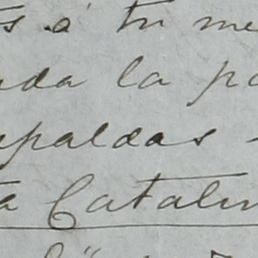 s á tu me
da la pa
spaldas -
a Catalin